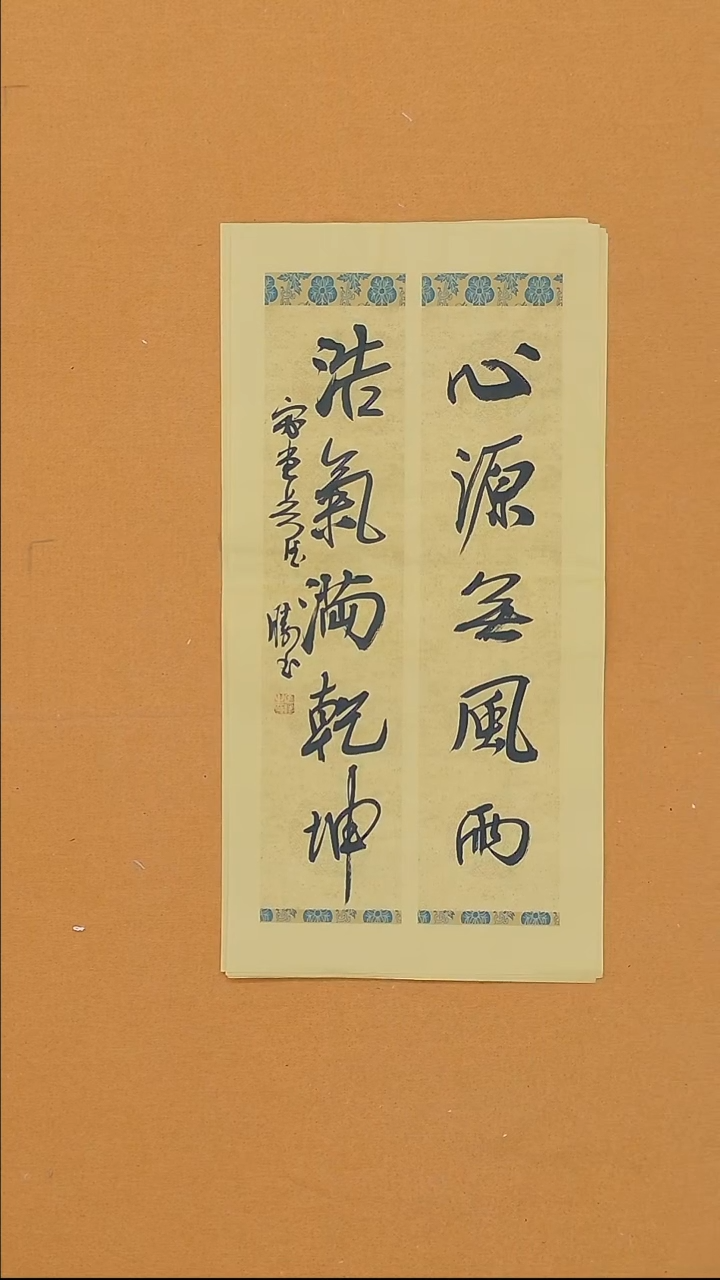 心源無風雨
浩氣滿乾坤